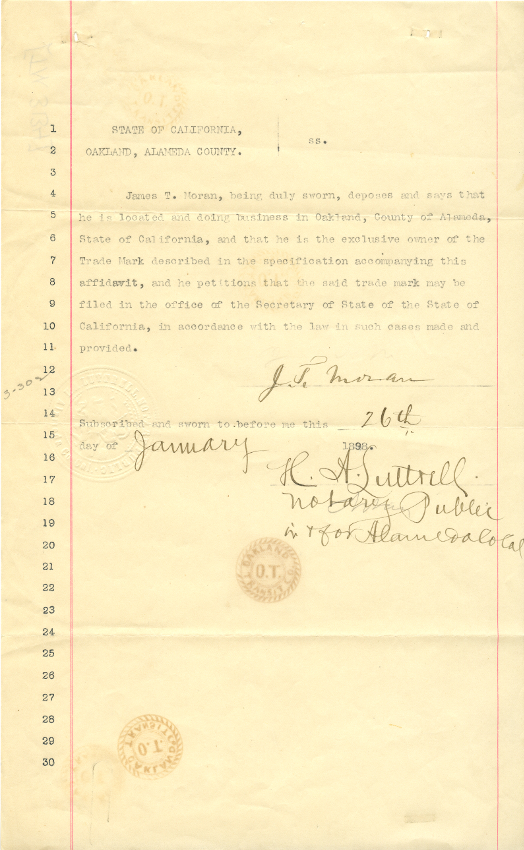 1 STATE OF CALIFORNIA,
ss.
2 OAKLAND, ALAMEDA COUNTY.
3
4 James T. Moran, being duly sworn, deposes and says that
5 he is located and doing business in Oakland, County of Alameda,
6 State of California, and that he is the exclusive owner of the
7 Trade Mark described in the specification accompanying this
8 affidavit, and he petitions that the said trade mark may be
9 filed in the office of the Secretary of State of the State of
10 California, in accordance with the law in such cases made and
11 provided.
12
J. T. Moran
3-302
13
14 Subscribed and sworn to before me this 26th
15 day of January 1898.
16
H. A. Luttrell.
17
Notary Public
18
in & for Alameda Co Cal
19
20
OAKLAND
21 O.T.
TRANSIT CO
22
23
24
25
26
27
28
TRANSIT CO
29 O.T.
OAKLAND
30